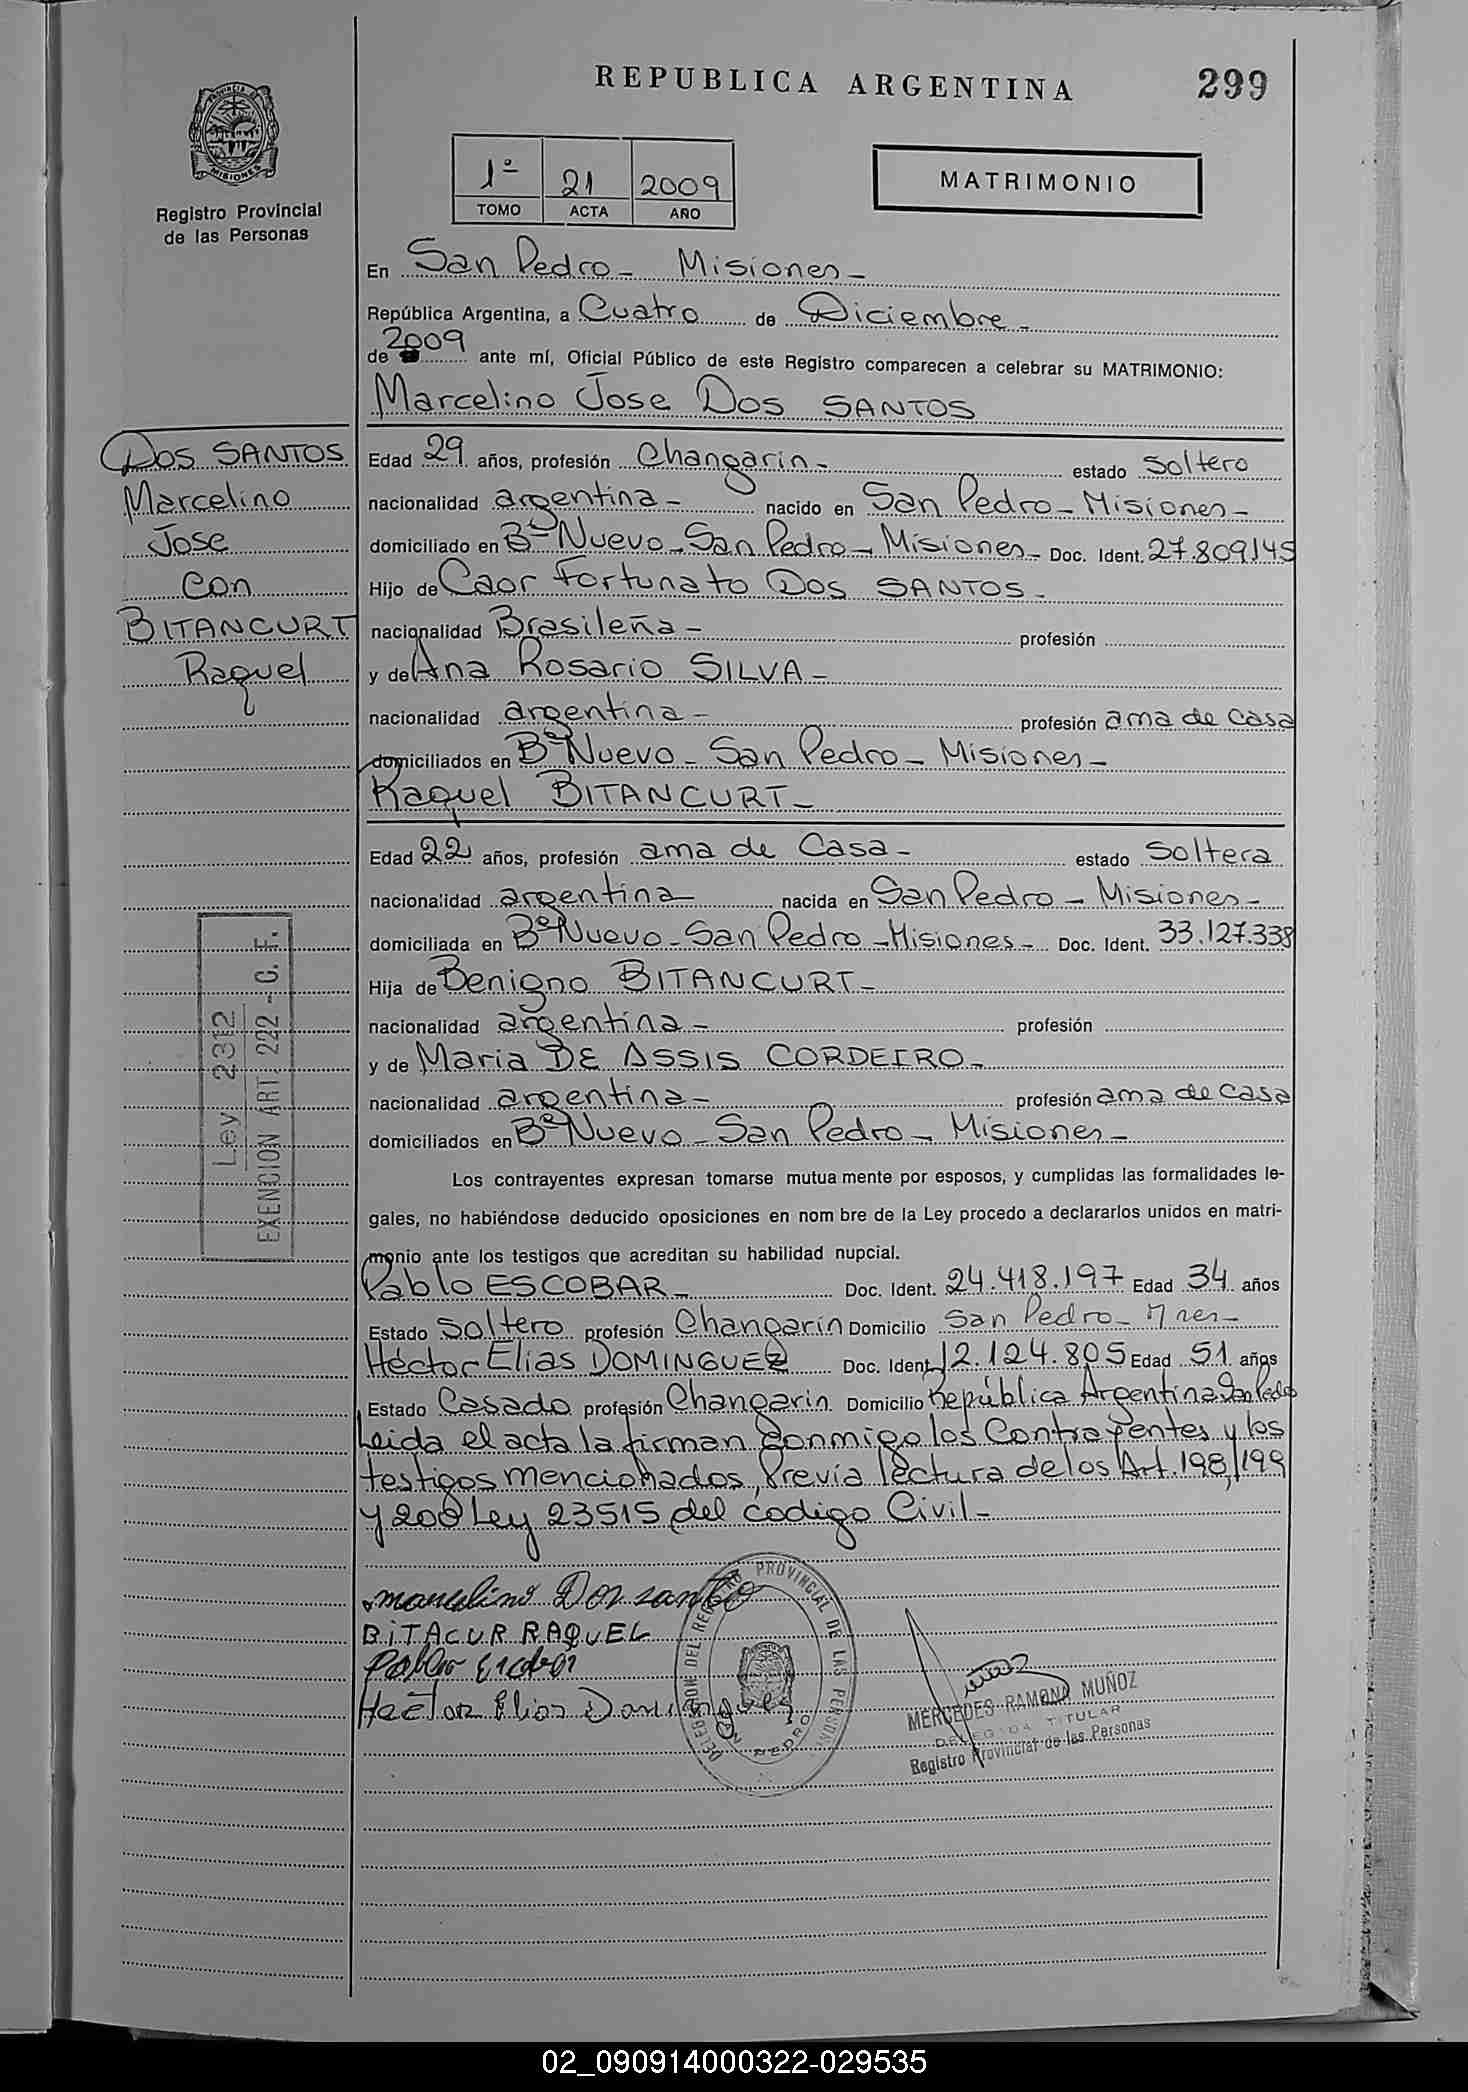 REPUBLICA ARGENTINA
299
PROVINCIA DE
MISIONES
Registro Provincial
de las Personas
1º 21 2009
TOMO ACTA AÑO
MATRIMONIO
En San Pedro - Misiones -
República Argentina, a Cuatro de Diciembre -
de 2009 ante mí, Oficial Público de este Registro comparecen a celebrar su MATRIMONIO:
Marcelino Jose Dos SANTOS
DOS SANTOS
Marcelino
Jose
con
BITANCURT
Raquel
Edad 29 años, profesión Changarin - estado soltero
nacionalidad argentina - nacido en San Pedro - Misiones -
domiciliado en Bº Nuevo - San Pedro - Misiones - Doc. Ident. 27.809145
Hijo de Caor Fortunato Dos SANTOS -
nacionalidad Brasileña - profesión
y de Ana Rosario SILVA -
nacionalidad argentina - profesión ama de casa
domiciliados en Bº Nuevo - San Pedro - Misiones -
Raquel BITANCURT -
Edad 22 años, profesión ama de Casa - estado Soltera
nacionalidad argentina nacida en San Pedro - Misiones -
domiciliada en Bº Nuevo - San Pedro - Misiones - Doc. Ident. 33.127.338
Hija de Benigno BITANCURT -
nacionalidad argentina - profesión
y de Maria DE ASSIS CORDEIRO -
nacionalidad argentina - profesión ama de casa
domiciliados en Bº Nuevo - San Pedro - Misiones -
Ley 2312
EXENCION ART. 222 - C. F.
Los contrayentes expresan tomarse mutua mente por esposos, y cumplidas las formalidades le-
gales, no habiéndose deducido oposiciones en nom bre de la Ley procedo a declararlos unidos en matri-
monio ante los testigos que acreditan su habilidad nupcial.
Pablo ESCOBAR - Doc. Ident. 24.418.197 Edad 34 años
Estado Soltero profesión Changarin Domicilio San Pedro - Mnes -
Héctor Elias DOMINGUEZ Doc. Ident. 12.124.805 Edad 51 años
Estado Casado profesión Changarin Domicilio República Argentina San Pedro
Leida el acta la firman conmigo los Contrayentes y los
testigos mencionados, Previa lectura de los Art. 198, 199
y 200 Ley 23515 del codigo Civil -
marcelino Dos santos
BiTACUR RAQUEL
Pablo Escobar
Hector Elias Dominguez
DELEGACION DEL REGISTRO PROVINCIAL DE LAS PERSONAS
SAN PEDRO
MERCEDES RAMONA MUÑOZ
DELEGADA TITULAR
Registro Provincial de las Personas
02_090914000322-029535